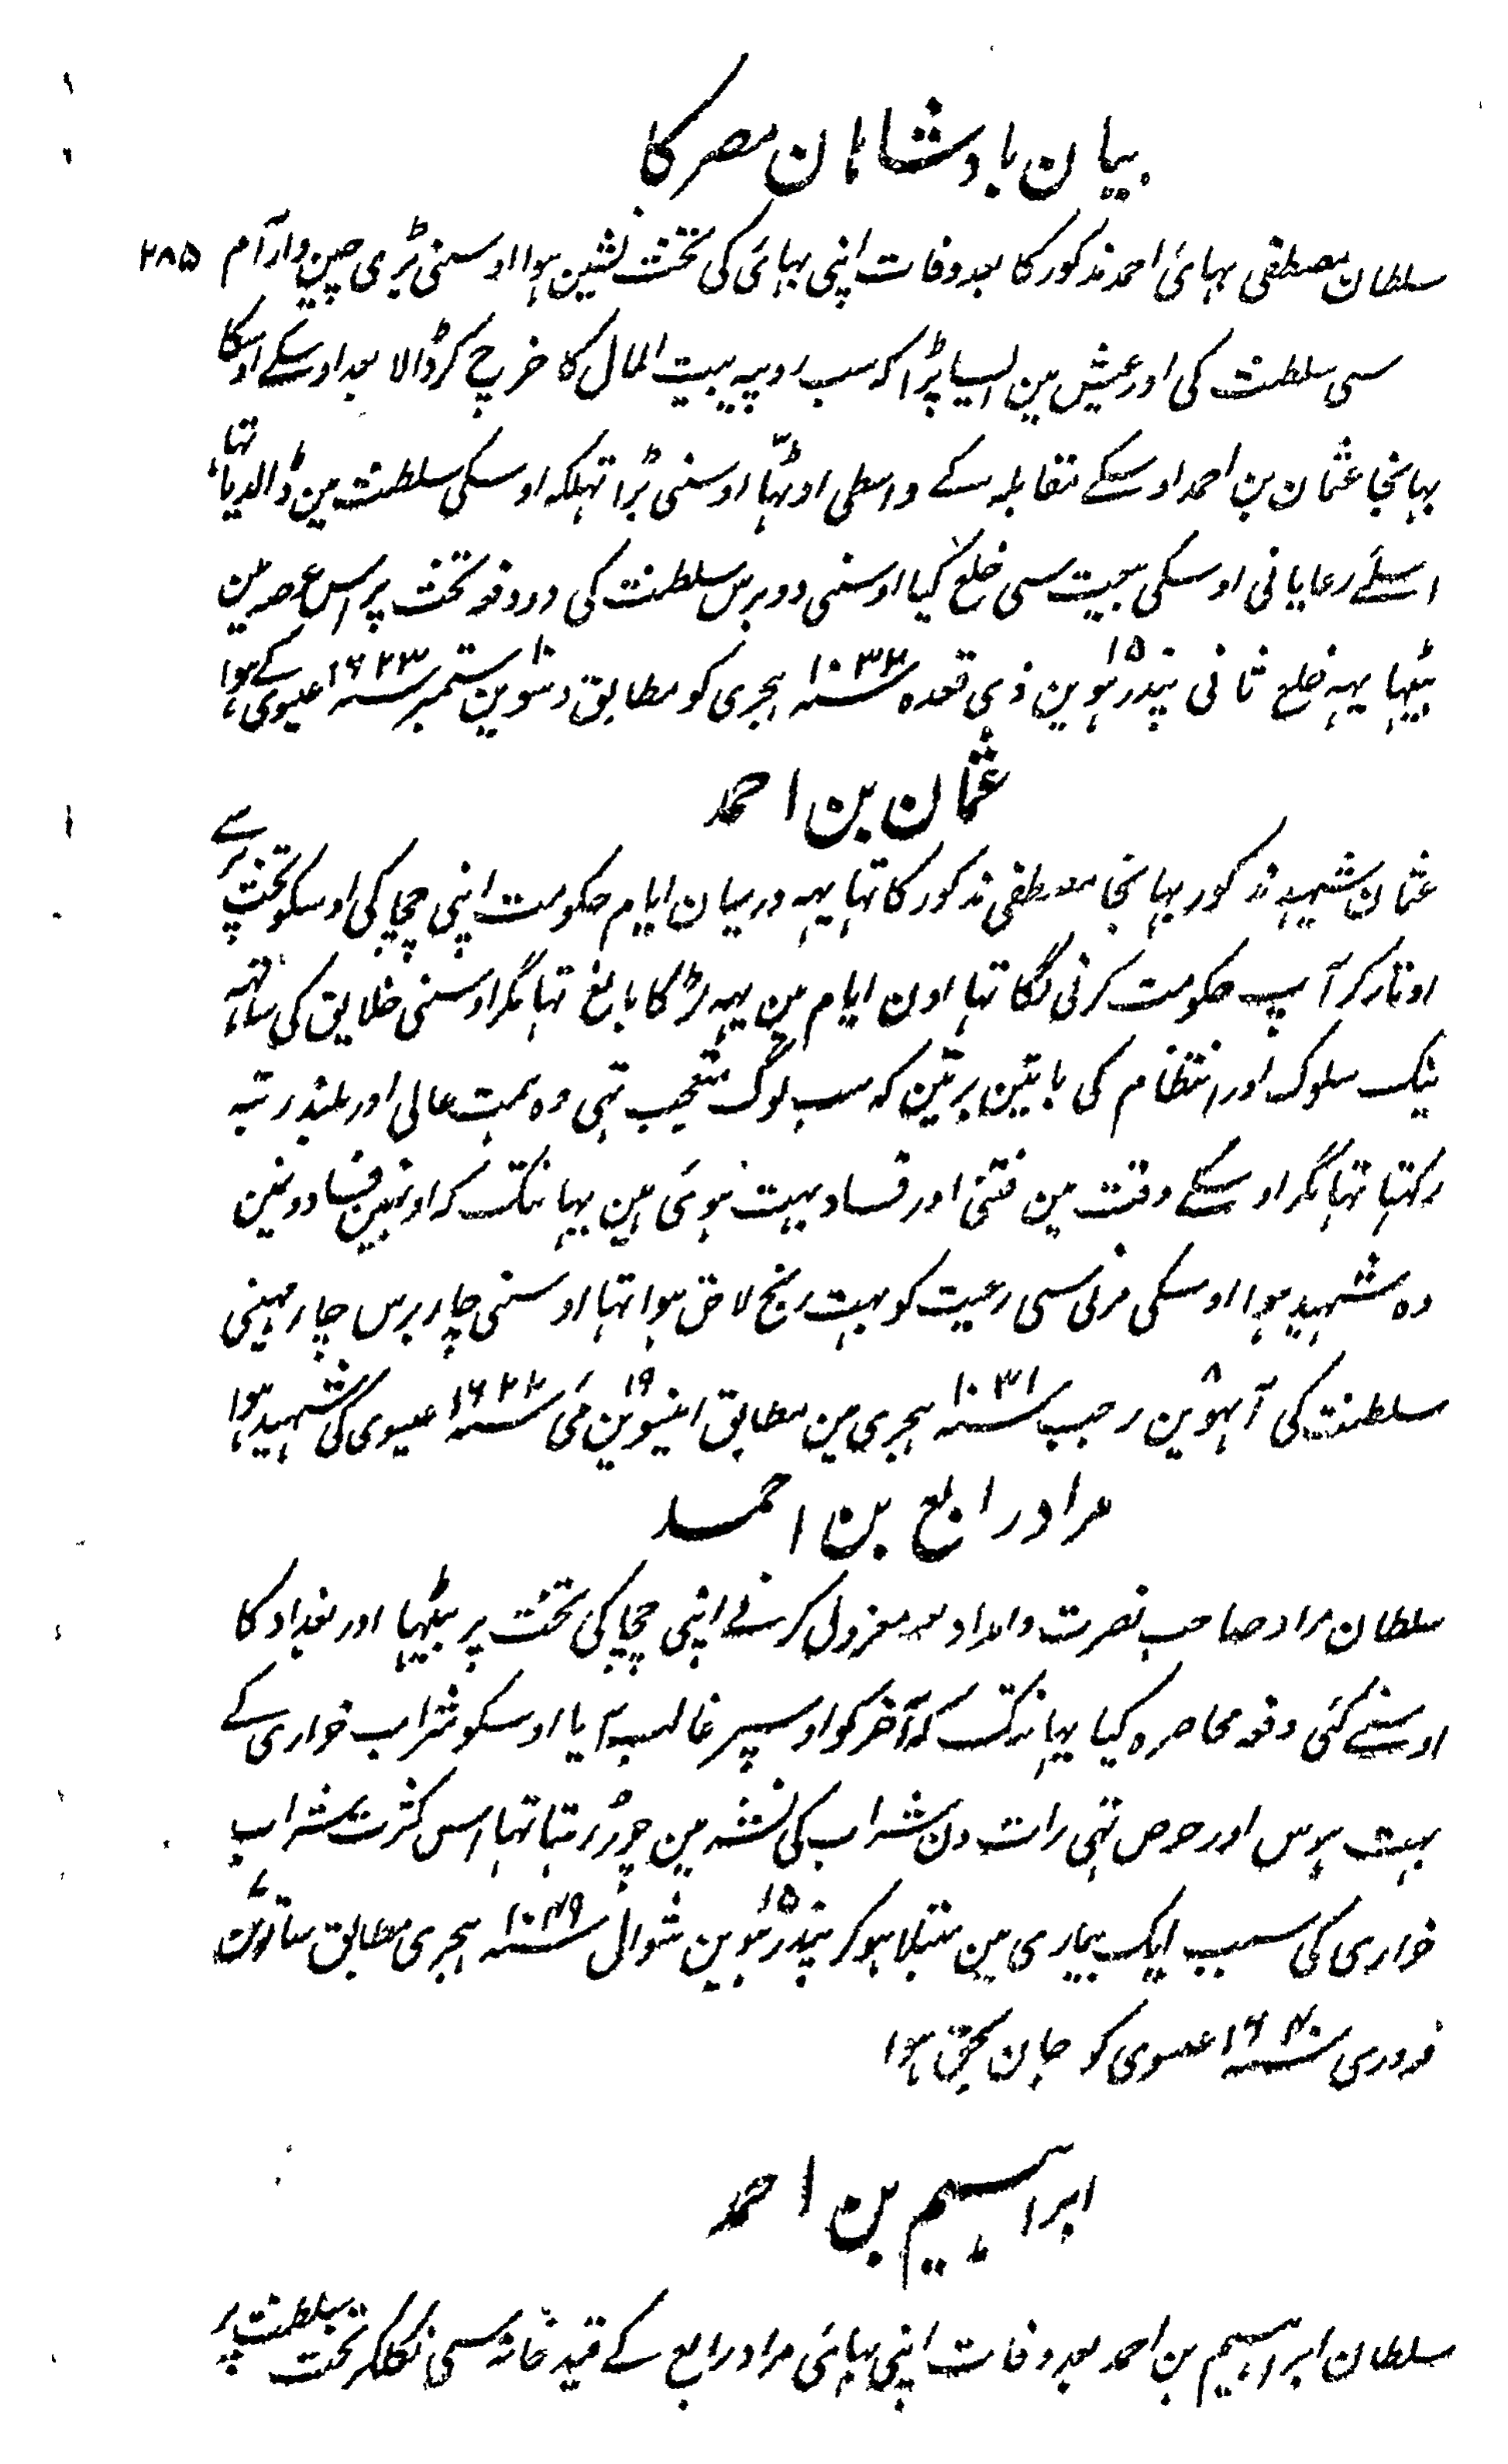 بیان بادشاہان مصر کا
۲۸۵
سلطان مصطفی بہائی احمد مذکور کا بعد وفات اپنی بہائی کی تخت نشین ہوا اوسنی بڑی چین و آرام
سی سلطنت کی اور عیش مین ایسا پڑا کہ سب روپیہ بیت المال کا خرچ کرڈالا بعد اوسکے اوسکا
بہانجا عثمان بن احمد اوسکے مقابلہ کے واسطی اوٹہا اوسنی بڑا تہلکہ اوسکی سلطنت مین ڈالدیا تہا
اسلئے رعایانی اوسکی بیعت سی خلع کیا اوسنی دو برس سلطنت کی دو دفعہ تخت پر اس عرصہ مین
بیٹہا یہہ خلع ثانی پندرہوین ۱۵ ذی قعدہ سنہ ۱۰۳۲ ہجری کو مطابق دسوین ۱۰ ستمبر سنہ ۱۶۲۳ عیسوی کے ہوا
عثمان بن احمد
عثمان شہید مذکور بہانجا مصطفی مذکور کا تہا یہہ درمیان ایام حکومت اپنی چچا کی اوسکو تخت پر سے
اوتار کر آپ حکومت کرنی لگا تہا اون ایام مین یہہ لڑکا بالغ تہا مگر اوسنی خلایق کی ساتہہ
نیک سلوک اور انتظام کی باتین برتین کہ سب لوگ متعجب تہی وہ ہمت عالی اور بلند رتبہ
رکہتا تہا مگر اوسکے وقت مین فتنی اور فساد بہت ہوئی ہین یہانتک کہ اونہین فسادونین
وہ شہید ہوا اوسکی مرنی سی رعیت کو بہت رنج لاحق ہوا تہا اوسنی چار برس چار مہینی
سلطنت کی آٹہوین ۸ رجب سنہ ۱۰۳۱ ہجری مین مطابق انیسوین ۱۹ مئی سنہ ۱۶۲۲ عیسوی کی شہید ہوا
مراد رابع بن احمد
سلطان مراد صاحب نصرت و امداد بعد معزول کرنے اپنی چچا کی تخت پر بیٹہا اور بغداد کا
اوسنے کئی دفعہ محاصرہ کیا یہانتک کہ آخر کو اوسپر غالب آیا اوسکو شراب خواری کے
بہت ہوس اور حرص تہی رات دن شراب کی نشہ مین چور رہتا تہا اس کثرت شراب
خواری کی سبب ایک بیماری مین مبتلا ہوکر پندرہوین ۱۵ شوال سنہ ۱۰۴۹ ہجری مطابق ساتوین ۷
فروری سنہ ۱۶۴۰ عیسوی کو جان بحق ہوا
ابراہیم بن احمد
سلطان ابراہیم بن احمد بعد وفات اپنی بہائی مراد رابع کے قید خانہ سی نکلکر تخت سلطنت پر